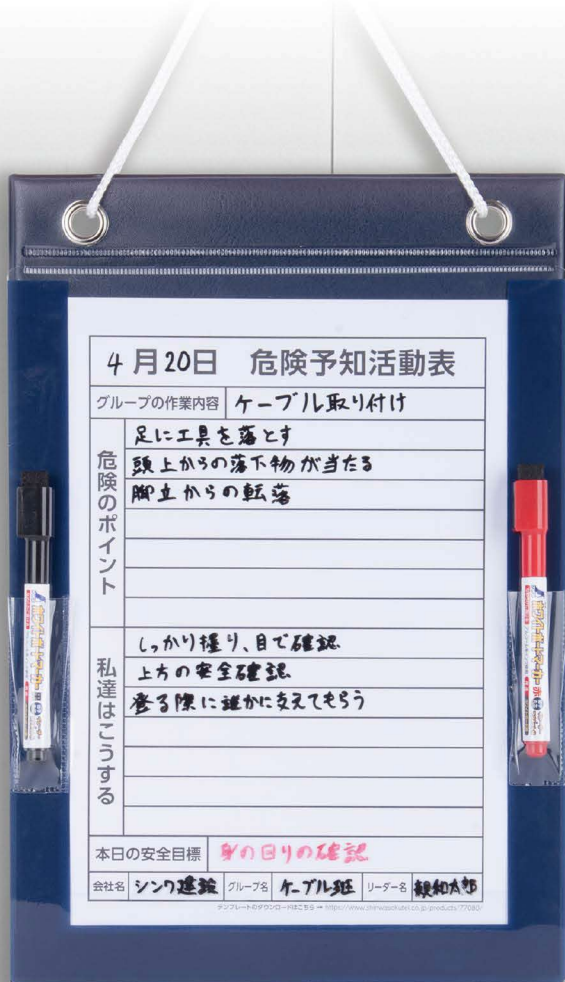 4月20日 危険予知活動表
グループの作業内容 ケーブル取り付け
危険のポイント
足に工具を落とす
頭上からの落下物が当たる
脚立からの転落
私達はこうする
しっかり握り、目で確認
上方の安全確認
登る際に誰かに支えてもらう
本日の安全目標 身の回りの確認
会社名 シンワ建設 グループ名 ケーブル班 リーダー名 親和太郎
テンプレートのダウンロードはこちら➡https://www.shinwasokutei.co.jp/products/77080/
ホワイトボードマーカー 黒
ホワイトボードマーカー 赤